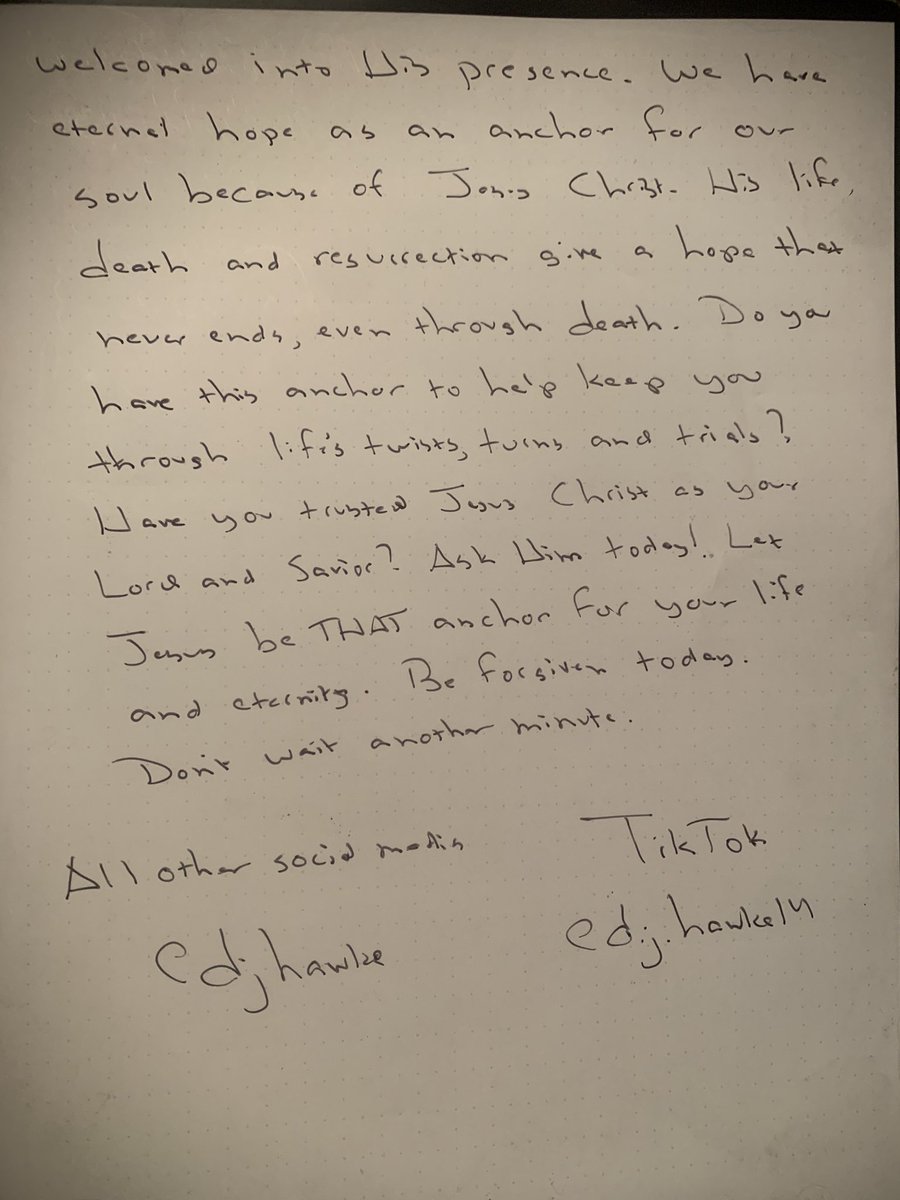 welcomed into His presence. We have
eternal hope as an anchor for our
soul because of Jesus Christ. His life,
death and resurrection give a hope that
never ends, even through death. Do you
have this anchor to help keep you
through life's twists, turns and trials?
Have you trusted Jesus Christ as your
Lord and Savior? Ask Him today! Let
Jesus be THAT anchor for your life
and eternity. Be forgiven today.
Don't wait another minute.
All other social media
TikTok
@djhawke
@d.j.hawke14